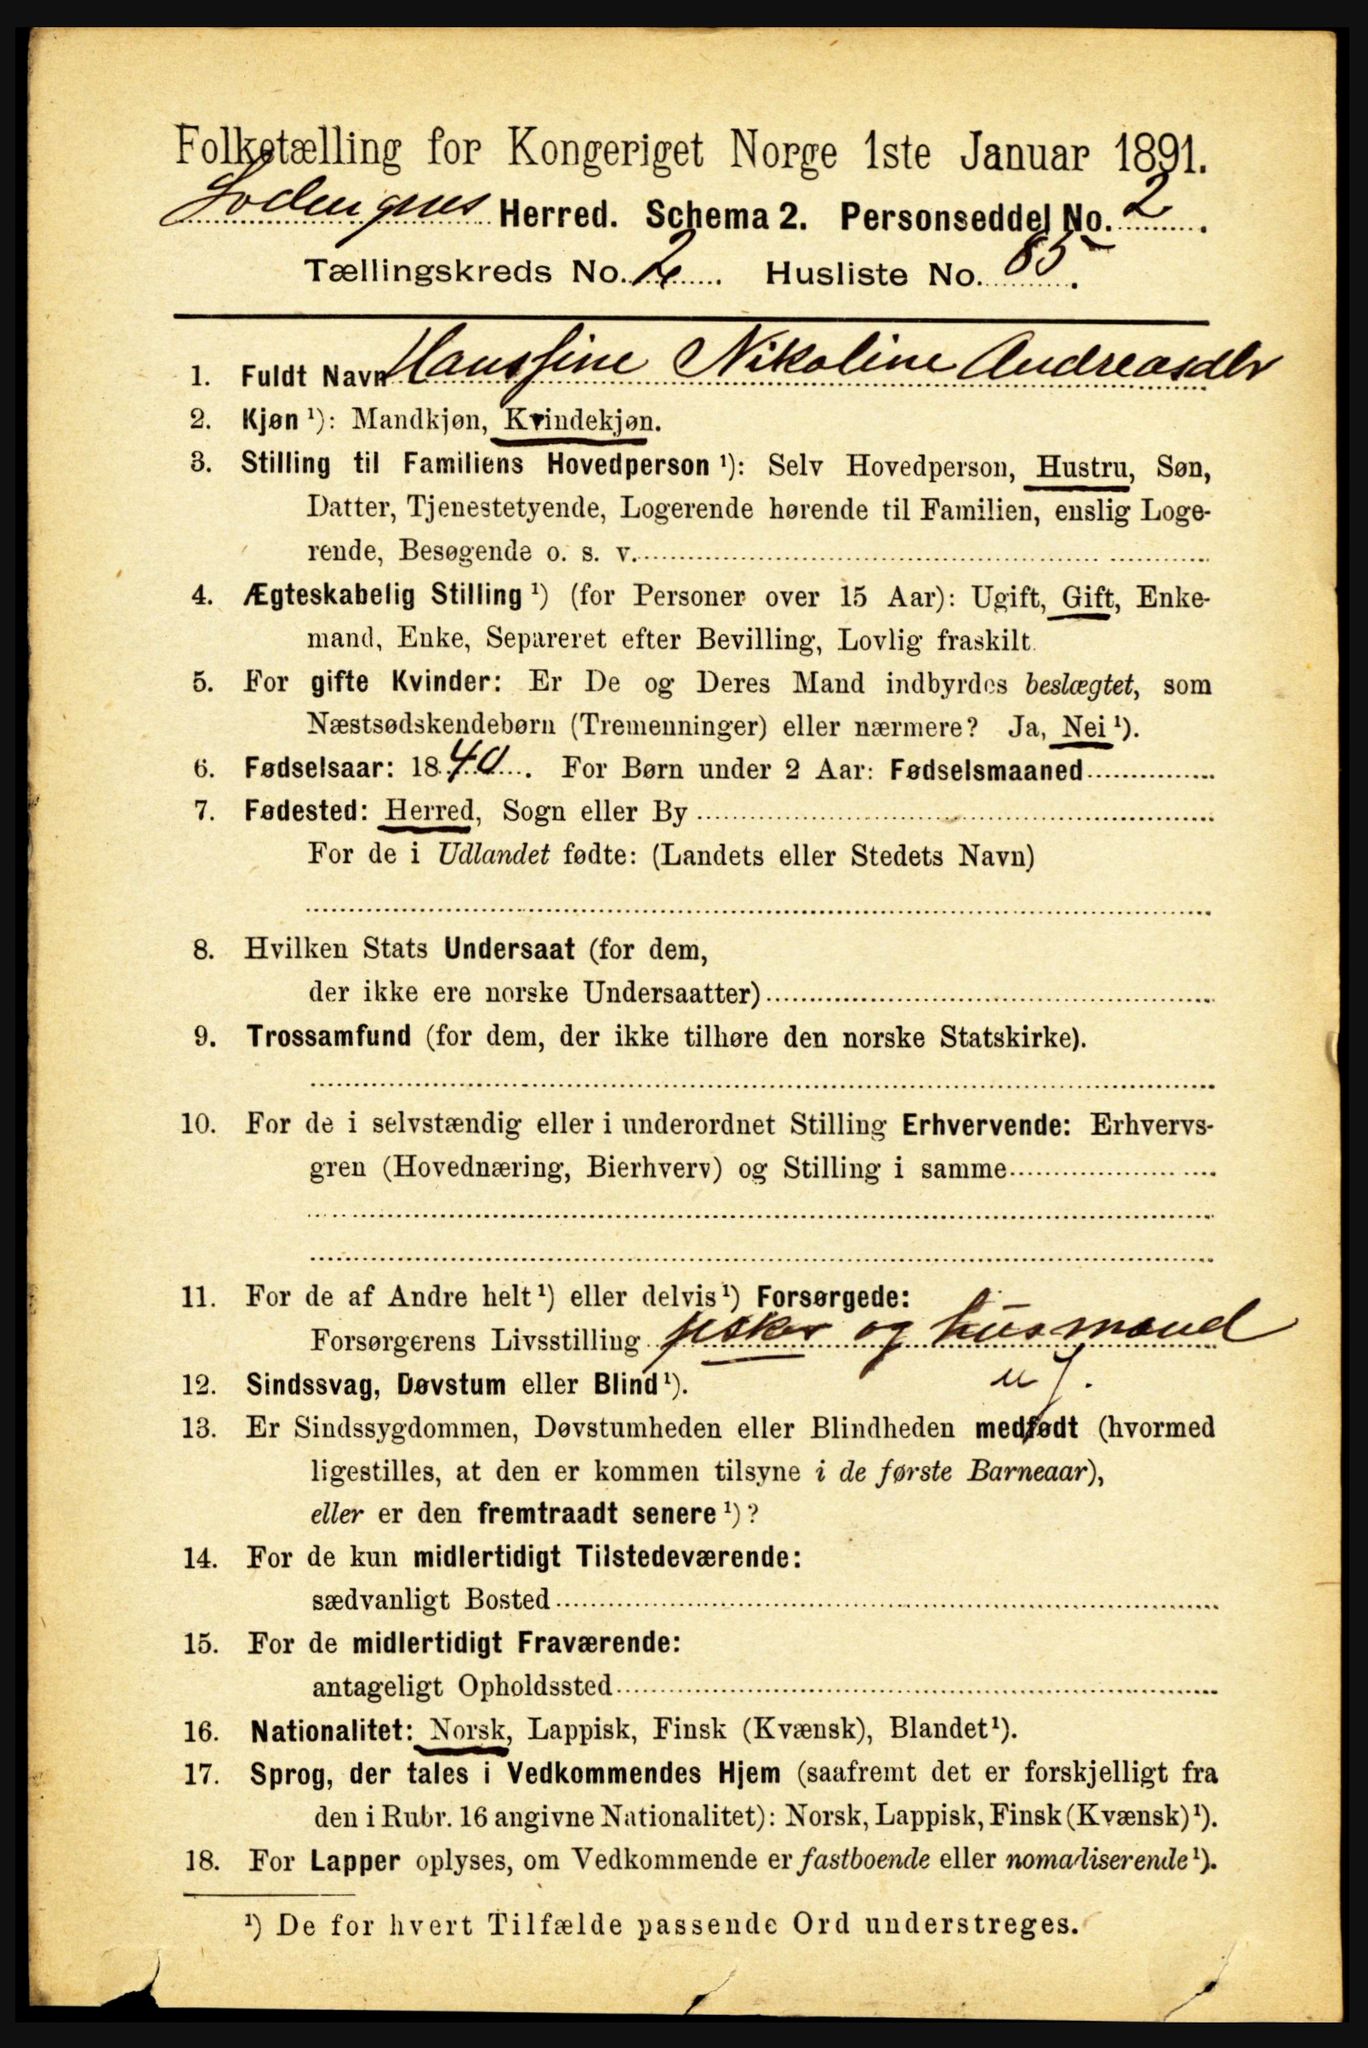 Folketælling for Kongeriget Norge 1ste Januar 1891.
Lodengens Herred. Schema 2. Personseddel No. 2.
Tællingskreds No. 2. Husliste No. 85.
1. Fuldt Navn Hansine Nikoline Andreasdtr
2. Kjøn ¹): Mandkjøn, Kvindekjøn.
3. Stilling til Familiens Hovedperson ¹): Selv Hovedperson, Hustru, Søn,
Datter, Tjenestetyende, Logerende hørende til Familien, enslig Loge-
rende, Besøgende o. s. v.
4. Ægteskabelig Stilling ¹) (for Personer over 15 Aar): Ugift, Gift, Enke-
mand, Enke, Separeret efter Bevilling, Lovlig fraskilt.
5. For gifte Kvinder: Er De og Deres Mand indbyrdes beslægtet, som
Næstsødskendebørn (Tremenninger) eller nærmere? Ja, Nei ¹).
6. Fødselsaar: 1840. For Børn under 2 Aar: Fødselsmaaned
7. Fødested: Herred, Sogn eller By
For de i Udlandet fødte: (Landets eller Stedets Navn)
8. Hvilken Stats Undersaat (for dem,
der ikke ere norske Undersaatter)
9. Trossamfund (for dem, der ikke tilhøre den norske Statskirke).
10. For de i selvstændig eller i underordnet Stilling Erhvervende: Erhvervs-
gren (Hovednæring, Bierhverv) og Stilling i samme
11. For de af Andre helt ¹) eller delvis ¹) Forsørgede:
Forsørgerens Livsstilling fisker og husmand
u J.
12. Sindssvag, Døvstum eller Blind ¹).
13. Er Sindssygdommen, Døvstumheden eller Blindheden medfødt (hvormed
ligestilles, at den er kommen tilsyne i de første Barneaar),
eller er den fremtraadt senere ¹)?
14. For de kun midlertidigt Tilstedeværende:
sædvanligt Bosted
15. For de midlertidigt Fraværende:
antageligt Opholdssted
16. Nationalitet: Norsk, Lappisk, Finsk (Kvænsk), Blandet ¹).
17. Sprog, der tales i Vedkommendes Hjem (saafremt det er forskjelligt fra
den i Rubr. 16 angivne Nationalitet): Norsk, Lappisk, Finsk (Kvænsk) ¹).
18. For Lapper oplyses, om Vedkommende er fastboende eller nomadiserende ¹).
¹) De for hvert Tilfælde passende Ord understreges.